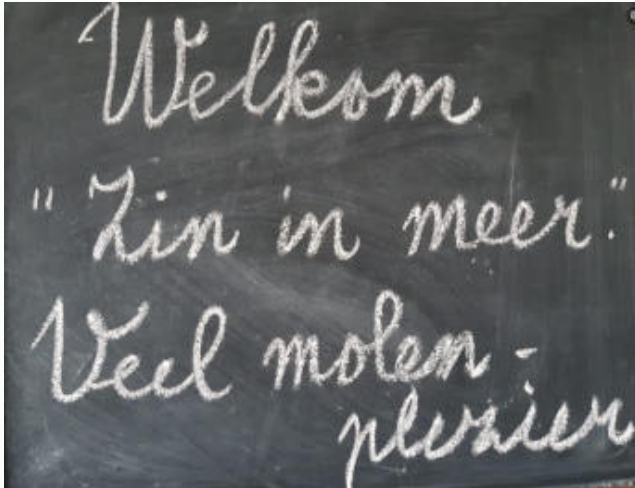 Welkom
"Zin in meer."
Veel molen-
plezier